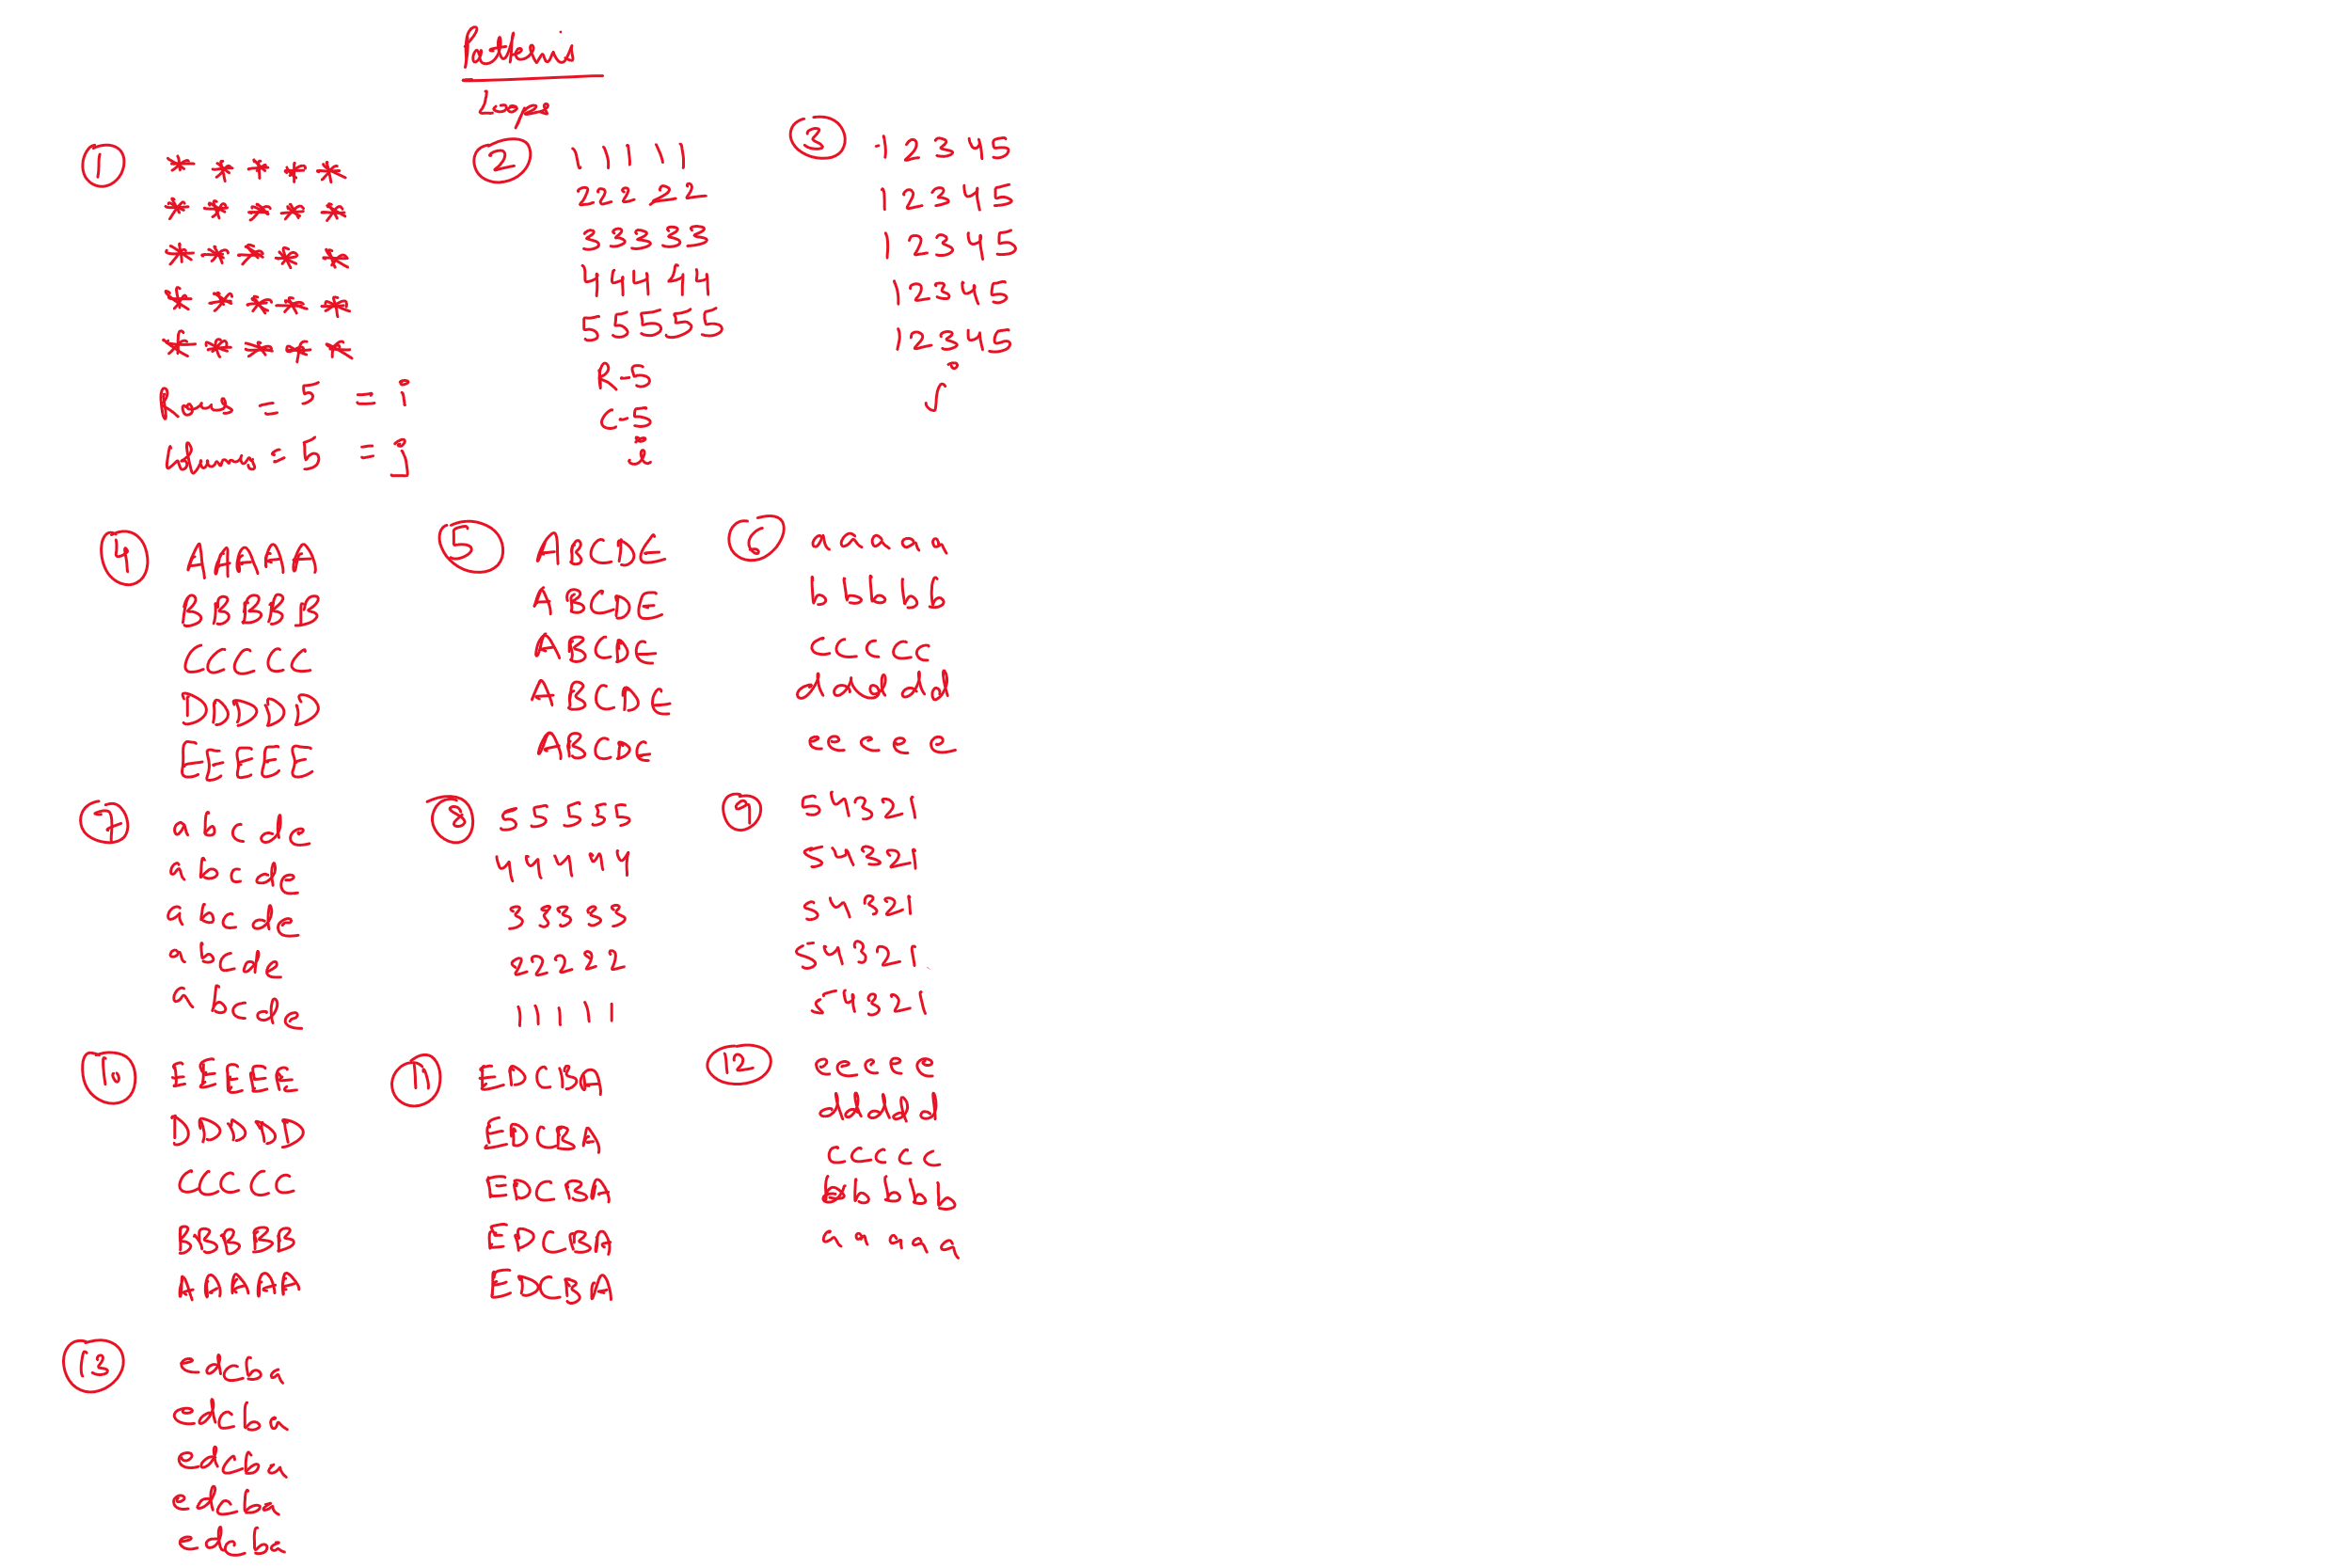 Patterns
Loops
① * * * * *
* * * * *
* * * * *
* * * * *
* * * * *
Rows = 5 = i
Columns = 5 = j
② 1 1 1 1 1
2 2 2 2 2
3 3 3 3 3
4 4 4 4 4
5 5 5 5 5
R-5
C-5
i
③ 1 2 3 4 5
1 2 3 4 5
1 2 3 4 5
1 2 3 4 5
1 2 3 4 5
j
④ A A A A A
B B B B B
C C C C C
D D D D D
E E E E E
⑤ A B C D E
A B C D E
A B C D E
A B C D E
A B C D E
⑥ a a a a a
b b b b b
c c c c c
d d d d d
e e e e e
⑦ a b c d e
a b c d e
a b c d e
a b c d e
a b c d e
⑧ 5 5 5 5 5
4 4 4 4 4
3 3 3 3 3
2 2 2 2 2
1 1 1 1 1
⑨ 5 4 3 2 1
5 4 3 2 1
5 4 3 2 1
5 4 3 2 1
5 4 3 2 1
⑩ E E E E E
D D D D D
C C C C C
B B B B B
A A A A A
⑪ E D C B A
E D C B A
E D C B A
E D C B A
E D C B A
⑫ e e e e e
d d d d d
c c c c c
b b b b b
a a a a a
⑬ e d c b a
e d c b a
e d c b a
e d c b a
e d c b a